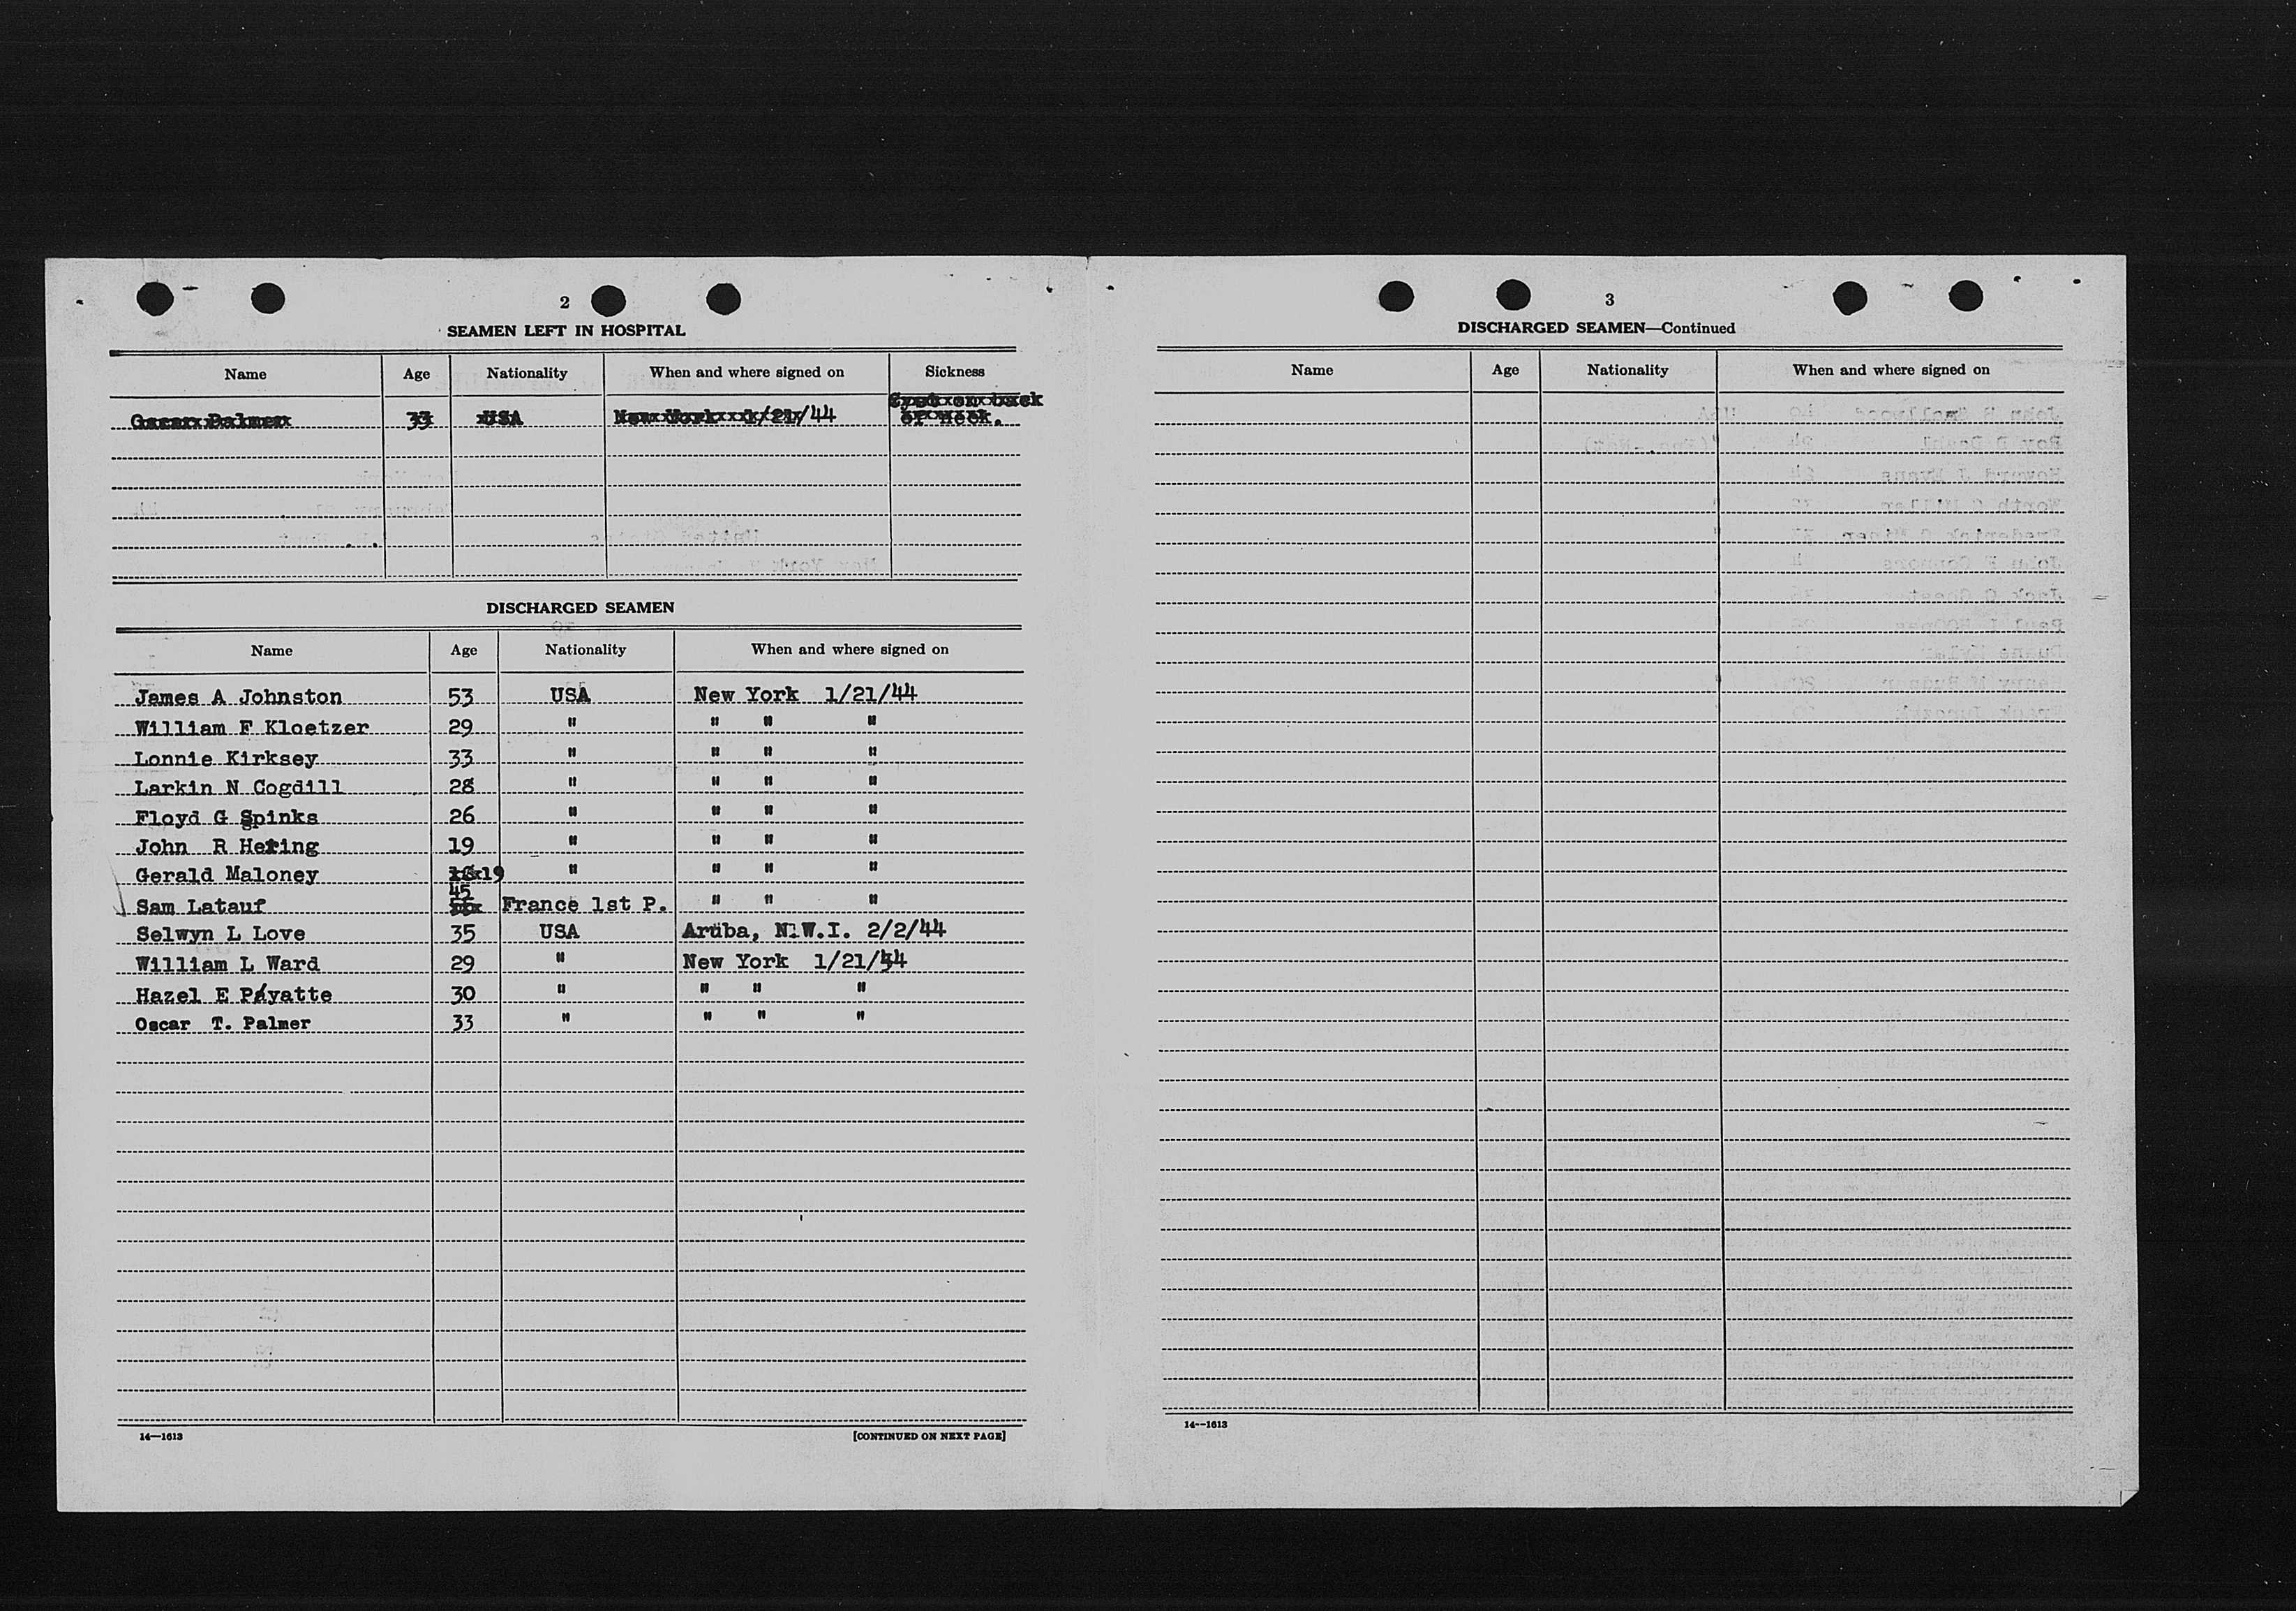 2
SEAMEN LEFT IN HOSPITAL
Name Age Nationality When and where signed on Sickness
Oscar Palmer 33 USA New York 1/21/44 Cyst on back
of neck.
DISCHARGED SEAMEN
Name Age Nationality When and where signed on
James A Johnston 53 USA New York 1/21/44
William F Kloetzer 29 " " " "
Lonnie Kirksey 33 " " " "
Larkin N Cogdill 28 " " " "
Floyd G Spinks 26 " " " "
John R Hering 19 " " " "
Gerald Maloney 19 " " " "
45
Sam Latauf France 1st P. " " "
Selwyn L Love 35 USA Aruba, N.W.I. 2/2/44
William L Ward 29 " New York 1/21/44
Hazel E Payatte 30 " " " "
Oscar T. Palmer 33 " " " "
14—1613 [CONTINUED ON NEXT PAGE]
3
DISCHARGED SEAMEN—Continued
Name Age Nationality When and where signed on
14—1613